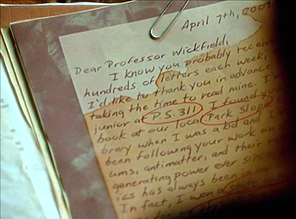 April 7th, 2007
Dear Professor Wickfield,
I know you probably receive
hundreds of letters each week,
I'd like to thank you in advance
taking the time to read mine. I'm
junior at P.S. 311 I found your
book at our local Park Slope
brary when I was a kid and
been following your work on
ums, antimatter, and their
generating power ever sin
ics has always been my
In fact, I won